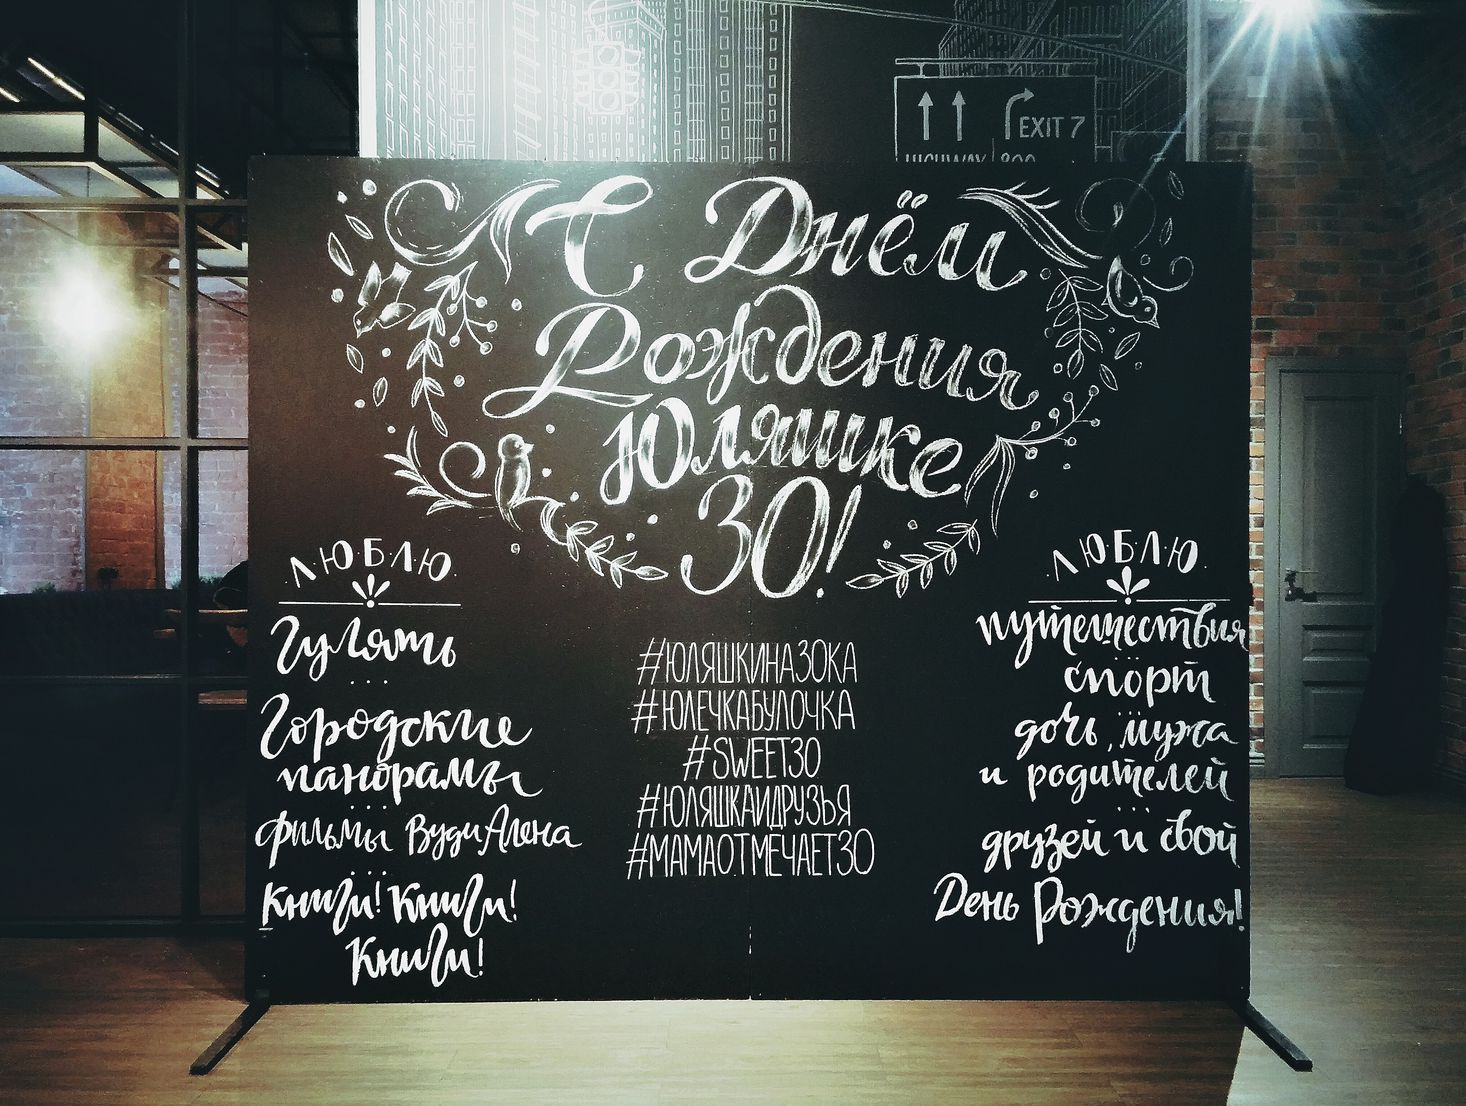 EXIT 7
HIGHWAY 800
С Днём
Рождения
Юляшке
30!
ЛЮБЛЮ
Гулять
Городские
панорамы
фильмы Вуди Алена
Книги! Книги!
Книги!
#ЮЛЯШКИНА30КА
#ЮЛЕЧКАБУЛОЧКА
#SWEET30
#ЮЛЯШКАИДРУЗЬЯ
#МАМАОТМЕЧАЕТ30
ЛЮБЛЮ
путешествия
спорт
дочь, мужа
и родителей
друзей и свой
День Рождения!